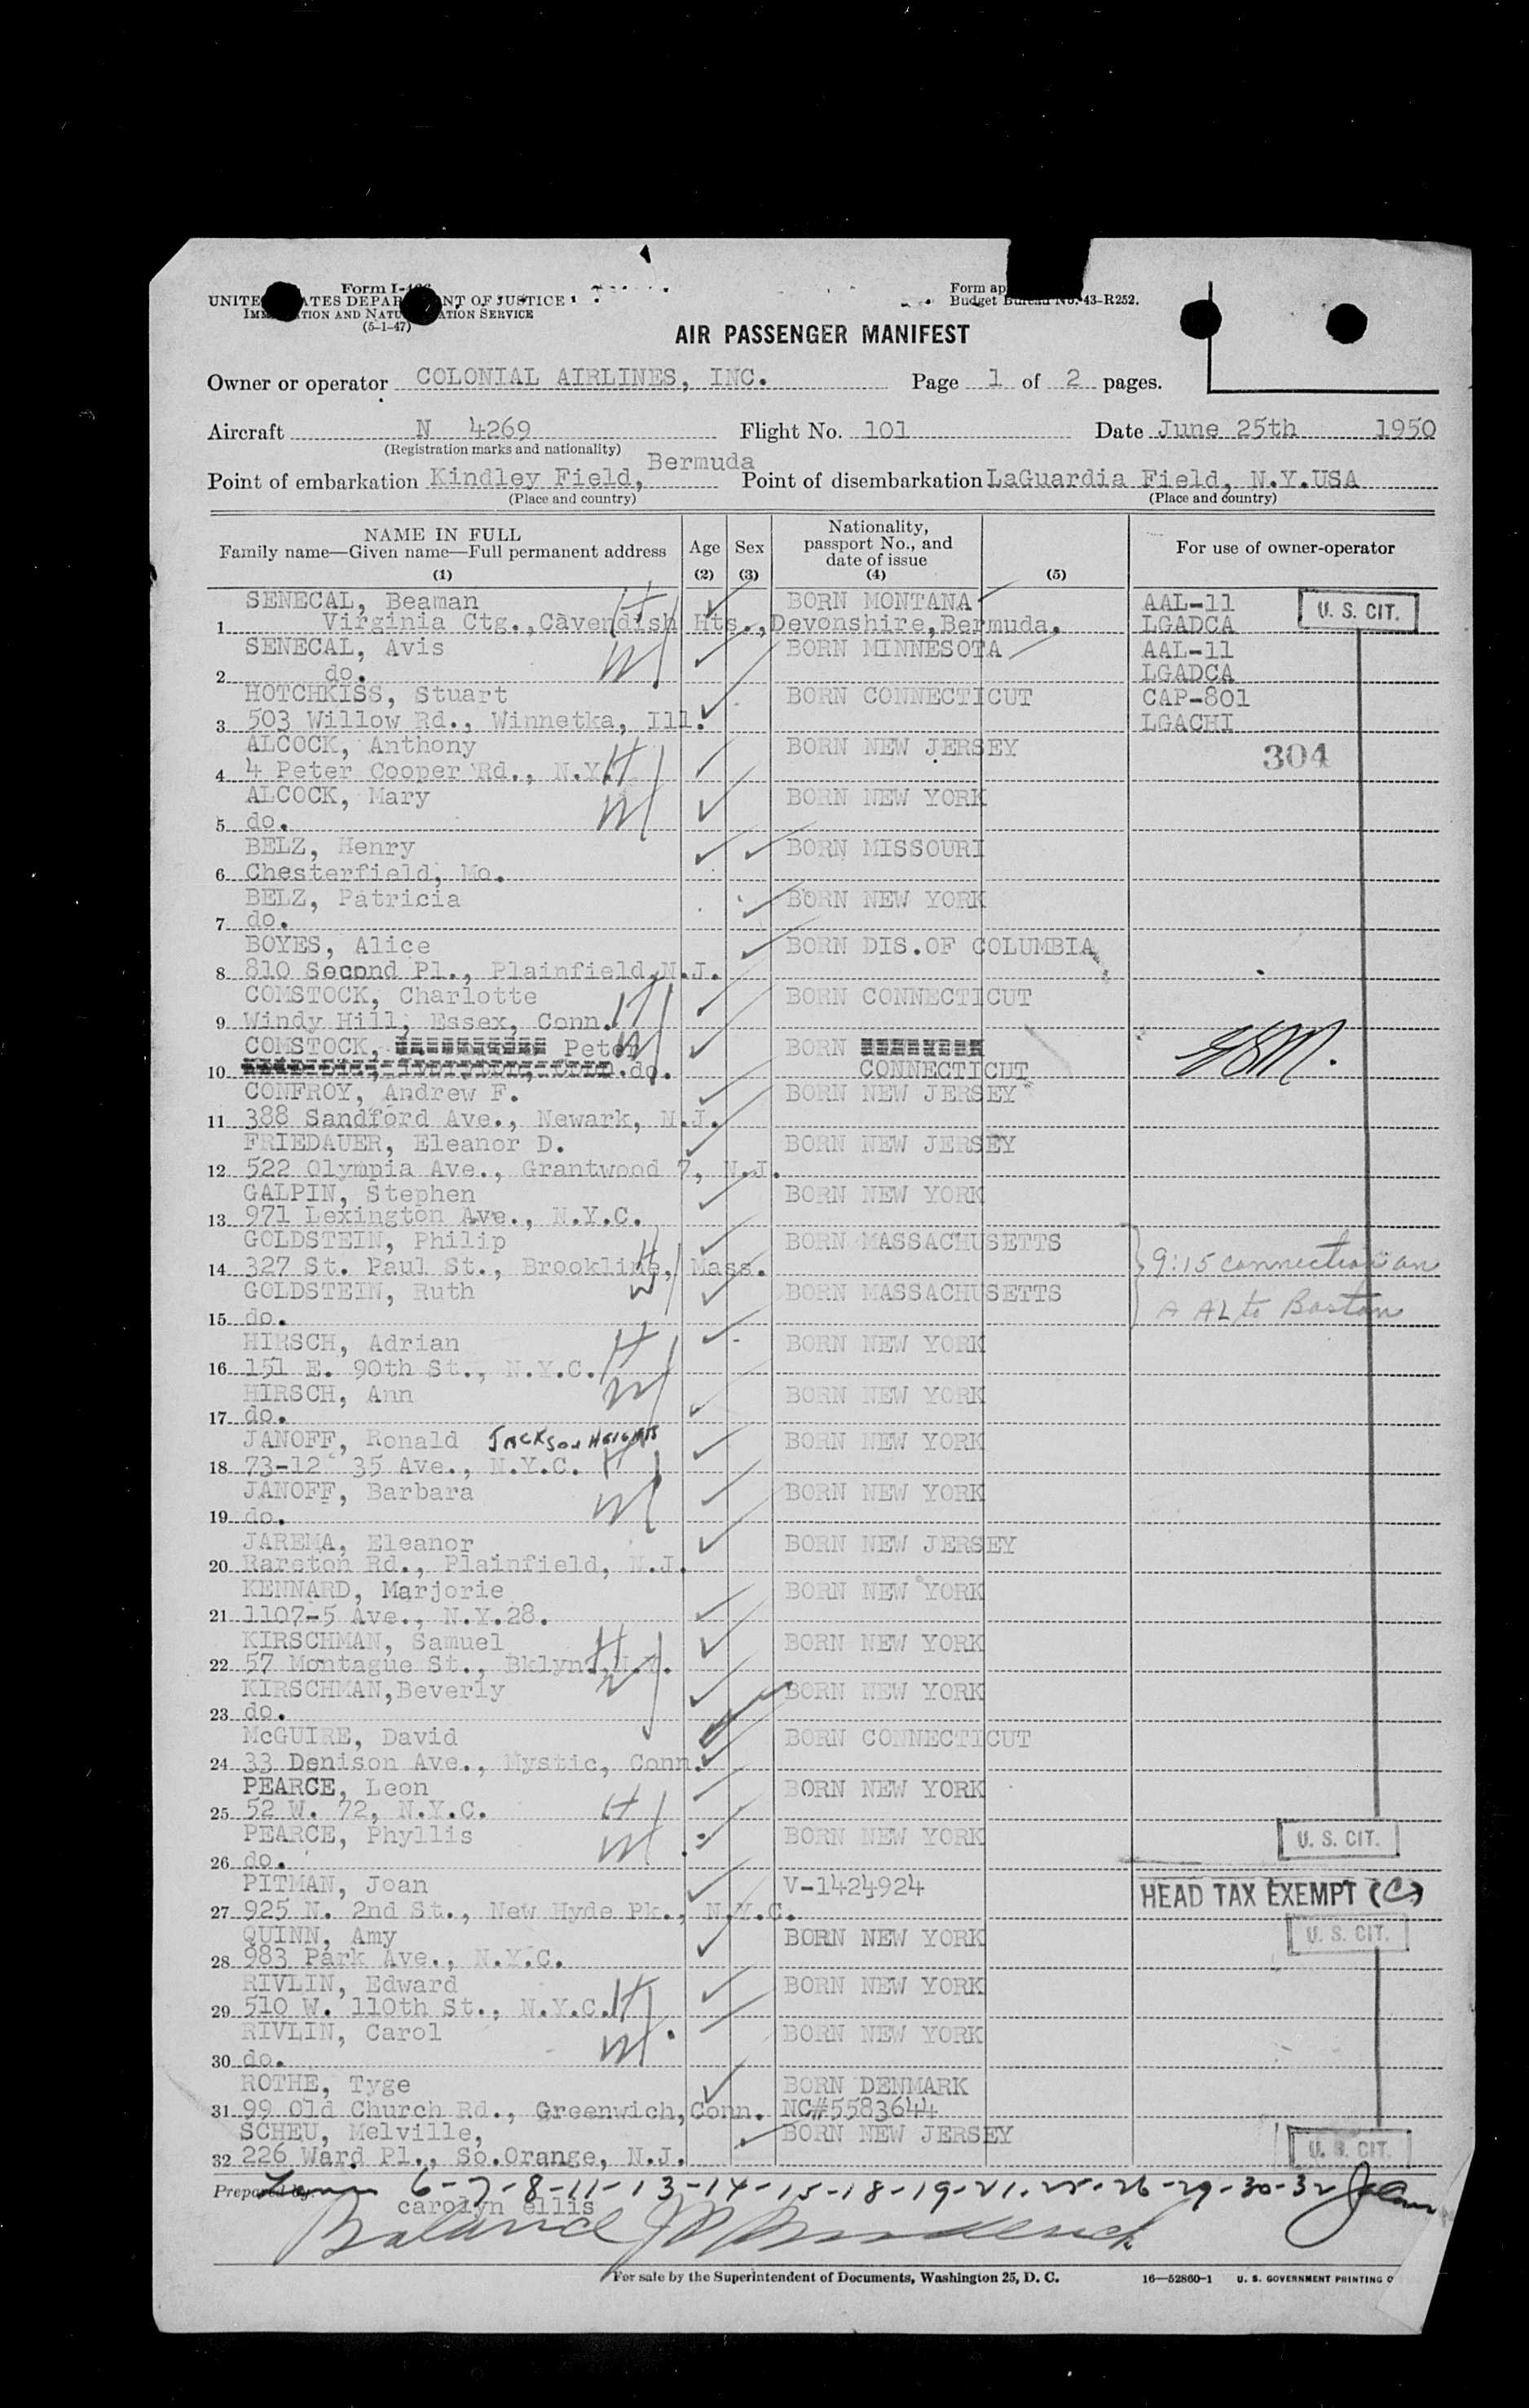 Form I-466
UNITED STATES DEPARTMENT OF JUSTICE
IMMIGRATION AND NATURALIZATION SERVICE
(5-1-47)
Form ap
Budget Bureau No. 43-R252.
AIR PASSENGER MANIFEST
Owner or operator COLONIAL AIRLINES, INC. Page 1 of 2 pages.
Aircraft N 4269 Flight No. 101 Date June 25th 1950
(Registration marks and nationality)
Bermuda
Point of embarkation Kindley Field, Point of disembarkation LaGuardia Field, N.Y.USA
(Place and country) (Place and country)
NAME IN FULL
Family name—Given name—Full permanent address
(1)
Age
(2)
Sex
(3)
Nationality,
passport No., and
date of issue
(4)
(5)
For use of owner-operator
SENECAL, Beaman H BORN MONTANA AAL-11 U. S. CIT.
1 Virginia Ctg.,Cavendish Hts.,Devonshire,Bermuda. LGADCA
SENECAL, Avis W BORN MINNESOTA AAL-11
2 do. LGADCA
HOTCHKISS, Stuart BORN CONNECTICUT CAP-801
3 503 Willow Rd., Winnetka, Ill. LGACHI
ALCOCK, Anthony BORN NEW JERSEY 304
4 4 Peter Cooper Rd., N.Y. H
ALCOCK, Mary W BORN NEW YORK
5 do.
BELZ, Henry BORN MISSOURI
6 Chesterfield, Mo.
BELZ, Patricia BORN NEW YORK
7 do.
BOYES, Alice BORN DIS.OF COLUMBIA
8 810 Second Pl., Plainfield,N.J.
COMSTOCK, Charlotte BORN CONNECTICUT
9 Windy Hill, Essex, Conn.
COMSTOCK, Peter BORN
10 do. CONNECTICUT
CONFROY, Andrew F. BORN NEW JERSEY
11 388 Sandford Ave., Newark, N.J.
FRIEDAUER, Eleanor D. BORN NEW JERSEY
12 522 Olympia Ave., Grantwood 7, N.J.
GALPIN, Stephen BORN NEW YORK
13 971 Lexington Ave., N.Y.C.
GOLDSTEIN, Philip H BORN MASSACHUSETTS
14 327 St. Paul St., Brookline, Mass. 9:15 connection on
GOLDSTEIN, Ruth W BORN MASSACHUSETTS
15 do. A AL to Boston
HIRSCH, Adrian H BORN NEW YORK
16 151 E. 90th St., N.Y.C.
HIRSCH, Ann W BORN NEW YORK
17 do.
JANOFF, Ronald Jackson Heights BORN NEW YORK
18 73-12 35 Ave., N.Y.C. H
JANOFF, Barbara W BORN NEW YORK
19 do.
JAREMA, Eleanor BORN NEW JERSEY
20 Rarston Rd., Plainfield, N.J.
KENNARD, Marjorie BORN NEW YORK
21 1107-5 Ave., N.Y.28.
KIRSCHMAN, Samuel H BORN NEW YORK
22 57 Montague St., Bklyn.,N.Y.
KIRSCHMAN,Beverly W BORN NEW YORK
23 do.
McGUIRE, David BORN CONNECTICUT
24 33 Denison Ave., Mystic, Conn.
PEARCE, Leon BORN NEW YORK
25 52 W. 72, N.Y.C. H
PEARCE, Phyllis W BORN NEW YORK U. S. CIT.
26 do.
PITMAN, Joan V-1424924 HEAD TAX EXEMPT (C)
27 925 N. 2nd St., New Hyde Pk., N.Y.C.
QUINN, Amy BORN NEW YORK U. S. CIT.
28 983 Park Ave., N.Y.C.
RIVLIN, Edward H BORN NEW YORK
29 510 W. 110th St., N.Y.C.
RIVLIN, Carol W BORN NEW YORK
30 do.
ROTHE, Tyge BORN DENMARK
31 99 Old Church Rd., Greenwich,Conn. NC#5583644
SCHEU, Melville, BORN NEW JERSEY
32 226 Ward Pl., So.Orange, N.J. U. S. CIT.
Prepared by: 6-7-8-11-13-14-15-18-19-21-25-26-29-30-32
carolyn ellis
For sale by the Superintendent of Documents, Washington 25, D. C. 16—52860-1 U. S. GOVERNMENT PRINTING O